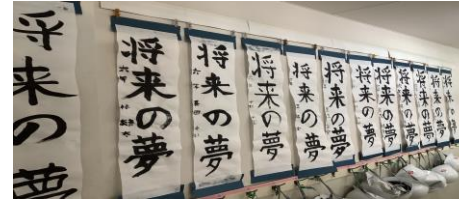 将来の夢
将来の夢
将来の夢
将来の夢
将来の夢
将来の夢
将来の夢
将来の夢
将来の夢
将来の夢
将来の夢